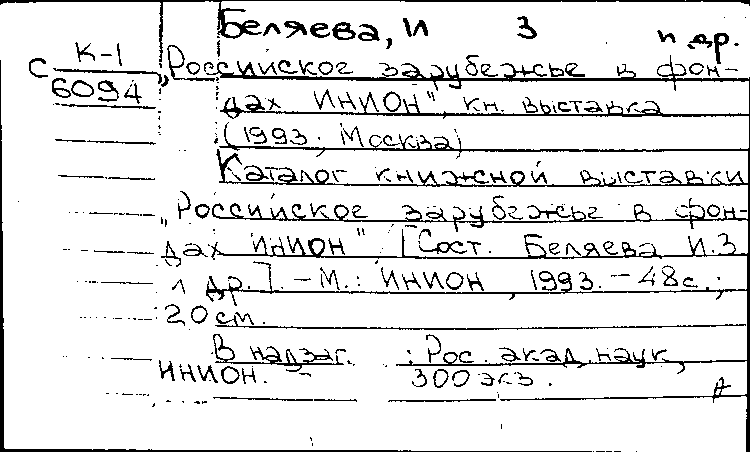 Беляева, И З и др.
С К-1
6094
„Российское зарубежье в фон-
дах ИНИОН", кн. выставка
(1993; Москва)
Каталог книжной выставки
„Российское зарубежье в фон-
дах ИНИОН" [Сост. Беляева И.З.
и др.]. - М.: ИНИОН, 1993. - 48с.;
20см.
В надзаг. : Рос. акад. наук,
ИНИОН. - 300 экз.